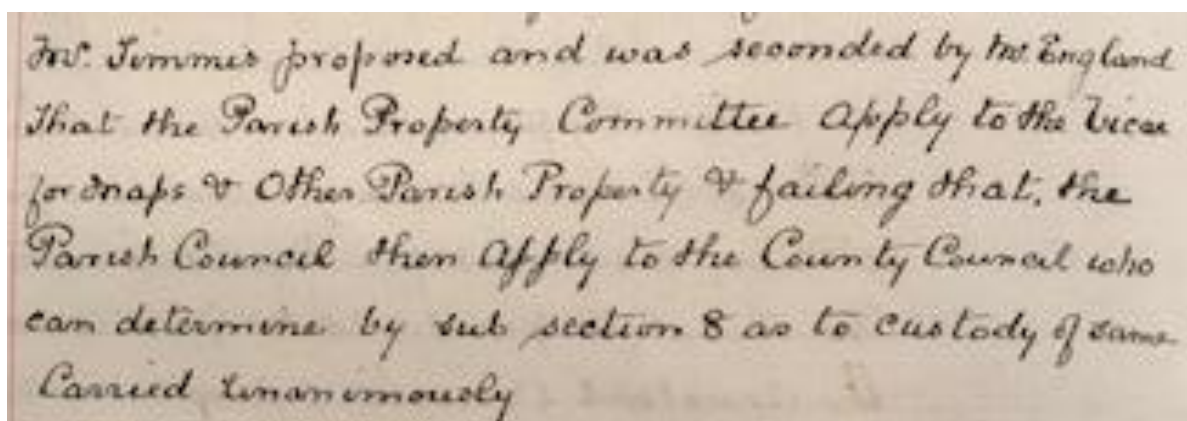 Mr. Timmis proposed and was seconded by Mr. England
That the Parish Property Committee Apply to the Vicar
for maps & Other Parish Property & failing that, the
Parish Council then Apply to the County Council who
can determine by sub section 8 as to custody of same
Carried Unanimously